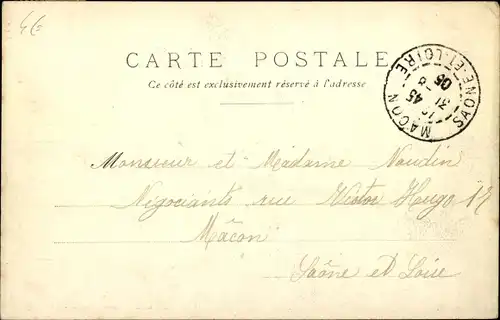 4€
CARTE POSTALE
Ce côté est exclusivement réservé à l'adresse
MACON
SAONE-ET-LOIRE
45
31 - 8
05
Monsieur et Madame Naudin
Négociants rue Victor Hugo
Mâcon
Saône et Loire